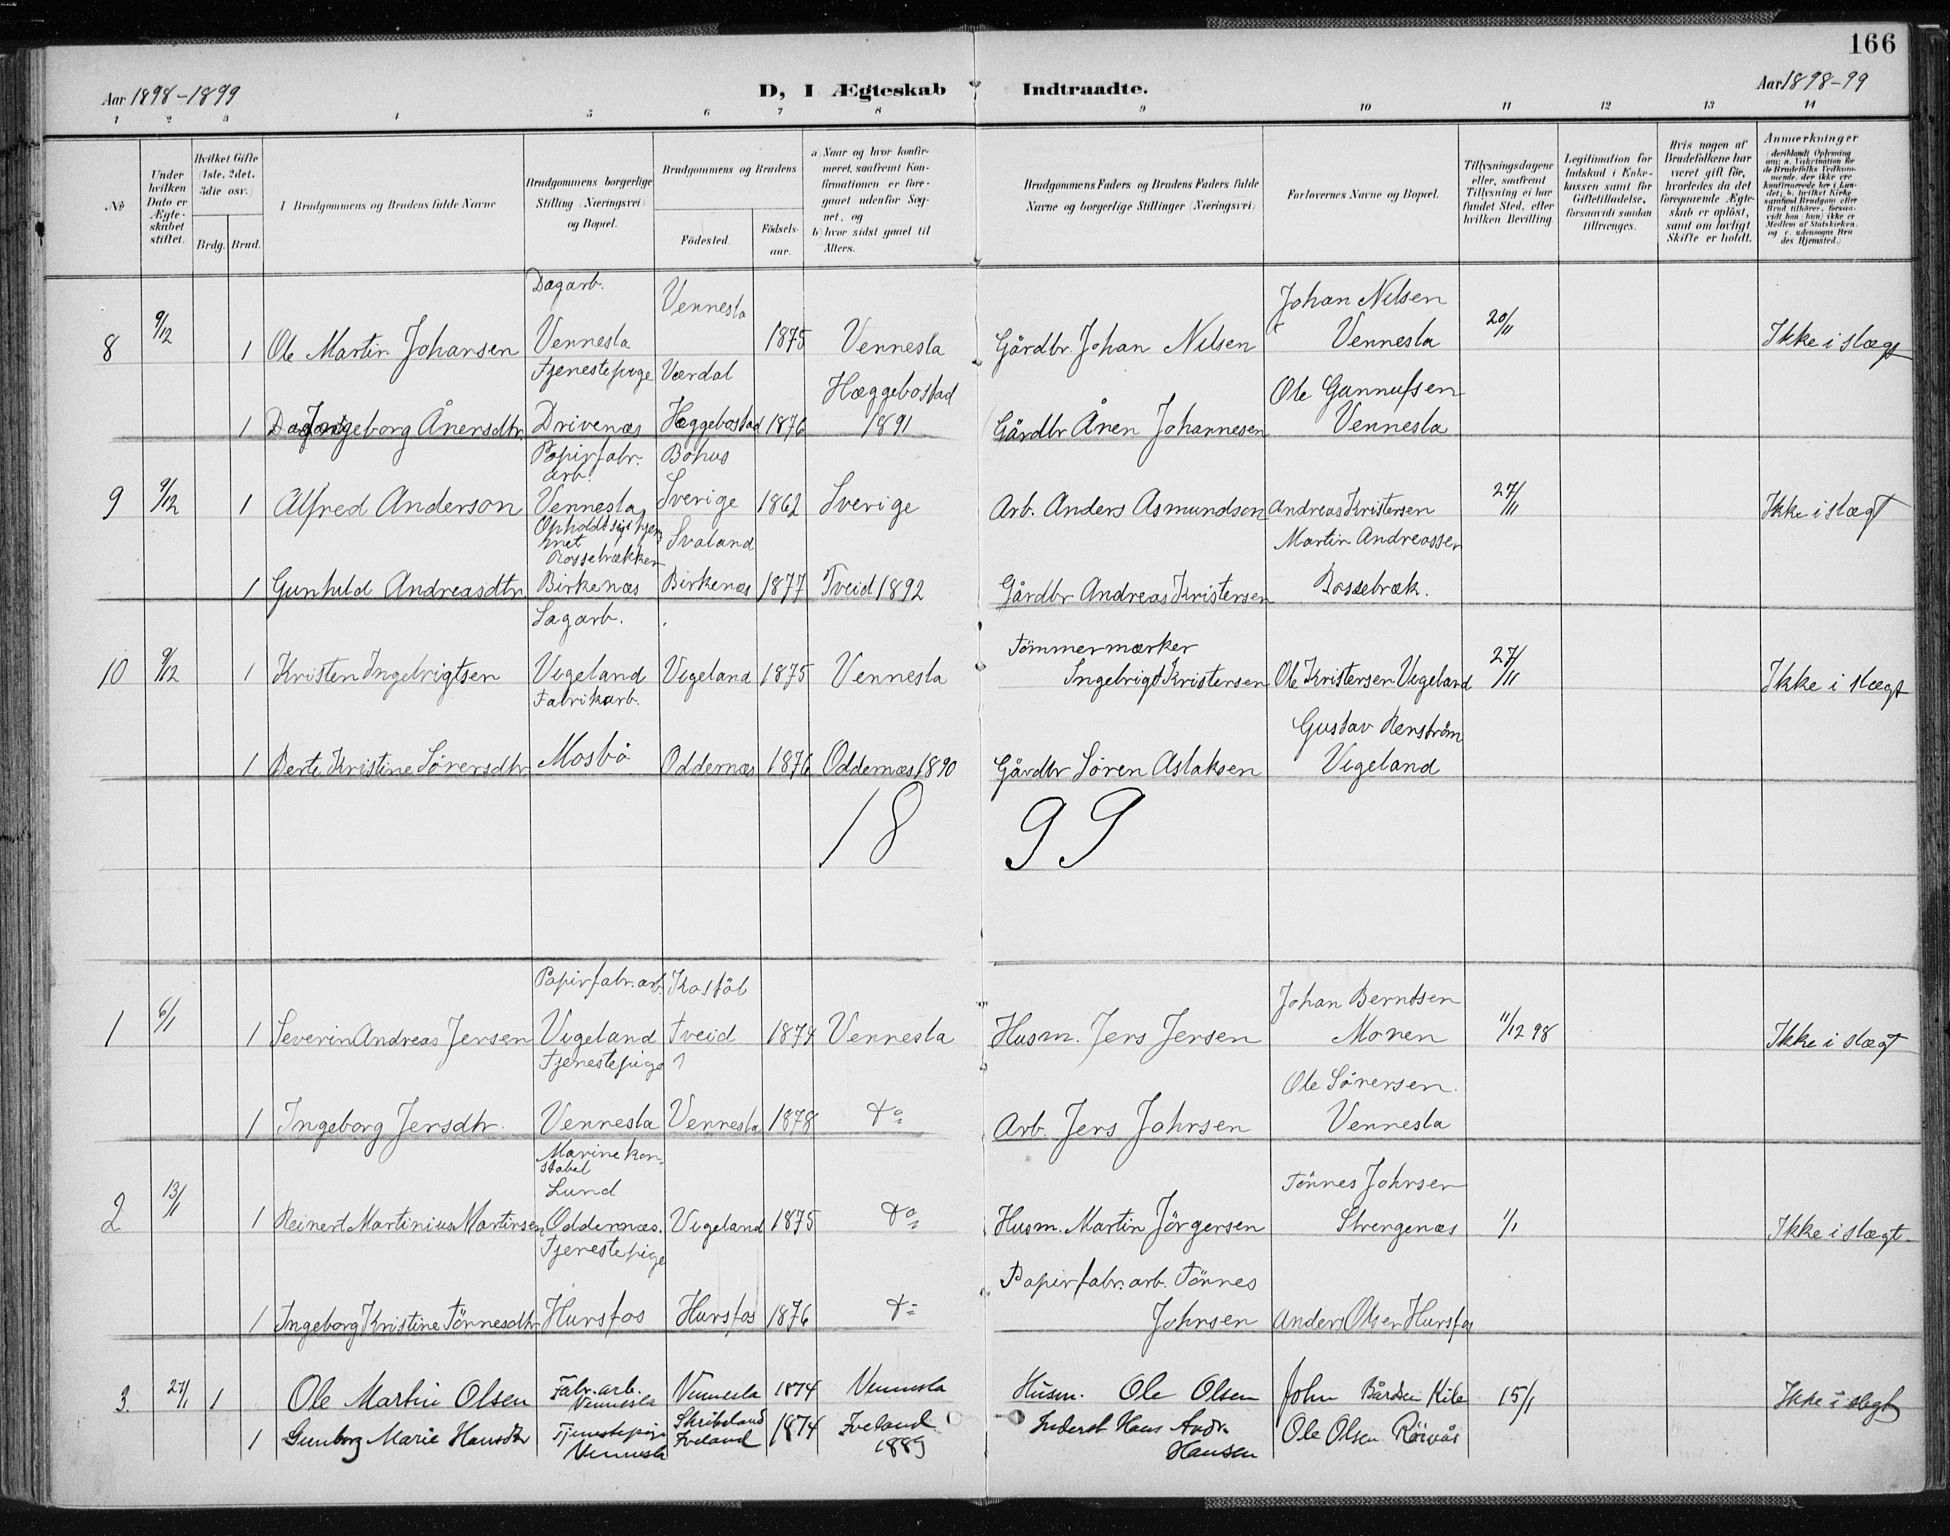 166
Aar 1898-1899
D, I Ægteskab Indtraadte.
Aar 1898-99
1 2 3 4 5 6 7 8 9 10 11 12 13 14
No
Under hvilken Dato er Ægteskabet stiftet.
Hvilket Gifte (1ste, 2det, 3die osv.)
Brdg. Brud.
Brudgommens og Brudens fulde Navne
Brudgommens borgerlige Stilling (Næringsvei) og Bopæl.
Brudgommens og Brudens
Fødested.
Fødselsaar.
a) Naar og hvor konfirmeret, saafremt Konfirmationen er foregaaet udenfor Sognet, og
b) hvor sidst gaaet til Alters.
Brudgommens Faders og Brudens Faders fulde Navne og borgerlige Stillinger (Næringsvei)
Forlovernes Navne og Bopæl.
Tillysningsdagene eller, saafremt Tillysning ei har fundet Sted, efter hvilken Bevilling.
Legitimation for Indskud i Enkekassen samt for Giftetilladelse, forsaavidt saadan tiltrænges.
Hvis nogen af Brudefolkene har været gift før, hvorledes da det foregaaende Ægteskab er opløst, samt om lovligt Skifte er holdt.
Anmærkninger
8 9/12 1 Ole Martin Johansen Dagarb. Vennesla Vennesla 1875 Vennesla Gårdbr. Johan Nilsen Johan Nilsen Vennesla 20/11 Ikke i slægt
1 Ingeborg Ånensdtr. Tjenestepige Drivenæs Værdal Hæggebostad 1876 Hæggebostad 1891 Gårdbr Ånen Johannesen Ole Gunnufsen Vennesla
9 9/12 1 Alfred Anderson Papirfabr. arb. Vennesla Bohus Sverige 1862 Sverige Arb. Anders Asmundson Andreas Kristensen 27/11 Ikke i slægt
1 Gunhild Andreasdtr. Rossebrækken Birkenæs Svaland Birkenæs 1877 Tveid 1892 Gårdbr Andreas Kristensen Martin Andreassen Rossebræk.
10 9/12 1 Kristen Ingebrigtsen Sagarb. Vigeland Vigeland 1875 Vennesla Tømmermærker Ingebrigt Kristensen Ole Kristensen Vigeland 27/11 Ikke i slægt
1 Berte Kristine Sørensdtr Fabrikarb. Mosbö Oddernæs 1876 Oddernæs 1890 Gårdbr Søren Aslaksen Gustav Renström Vigeland
1899
1 6/1 1 Severin Andreas Jensen Papirfabr. arb. Vigeland Kostöl Tveid 1874 Vennesla Husm. Jens Jensen Johan Berntsen Monen 11/12 98 Ikke i slægt
1 Ingeborg Jensdtr. Tjenestepige Vennesla Vennesla 1878 do Arb. Jens Johnsen Ole Sörensen Vennesla
2 13/1 1 Reinert Martinius Martinsen Marinekonstabel Lund Oddernæs. Vigeland 1875 do Husm. Martin Jörgensen Tönnes Johnsen Strengenæs 1/1 Ikke i slægt.
1 Ingeborg Kristine Tönnesdtr Tjenestepige Hunsfos Hunsfos 1876 do Papirfabr. arb. Tönnes Johnsen Anders Olsen Hunsfos
3. 27/1 1 Ole Martin Olsen Fabr. arb. Vennesla Vennesla 1874 Vennesla Husm. Ole Olsen John Bårdsen Kile 15/1 Ikke i slægt
1 Gunborg Marie Hansdtr Tjenestepige Vennesla Skribeland Iveland 1874 Iveland 1889 Inderst Hans Andr. Hansen Ole Olsen